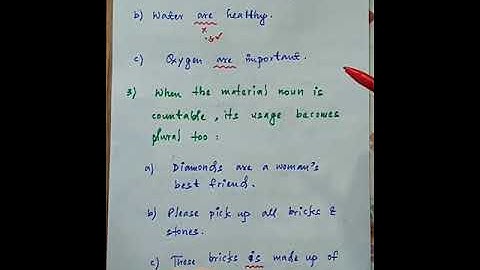 b) Water are healthy.
x is ✓
c) Oxygen are important.
3) When the material noun is
countable, its usage becomes
plural too:
a) Diamonds are a woman's
best friend.
b) Please pick up all bricks &
stones.
c) These bricks is made up of